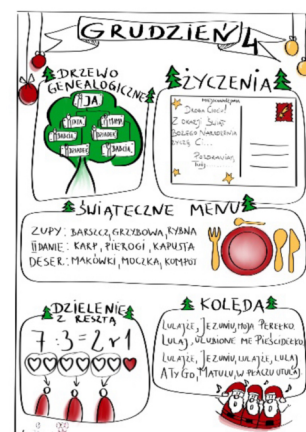 GRUDZIEŃ 4
DRZEWO
GENEALOGICZNE
JA
TATA
MAMA
BABCIA
DZIADEK
DZIADEK
BABCIA
ŻYCZENIA
DROGA CIOCIU!
Z OKAZJI ŚWIĄT
BOŻEGO NARODZENIA
ŻYCZĘ CI...
POZDRAWIAM,
ŚWIĄTECZNE MENU
ZUPY: BARSZCZ, GRZYBOWA, RYBNA
II DANIE: KARP, PIEROGI, KAPUSTA
DESER: MAKÓWKI, MOCZKA, KOMPOT
DZIELENIE
Z RESZTĄ
7:3=2 r 1
KOLĘDA
LULAJŻE, JEZUNIU, MOJA PEREŁKO
LULAJ, ULUBIONE ME PIEŚCIDEŁKO
LULAJŻE, JEZUNIU, LULAJŻE, LULAJ
A TY GO, MATULU, W PŁACZU UTULAJ